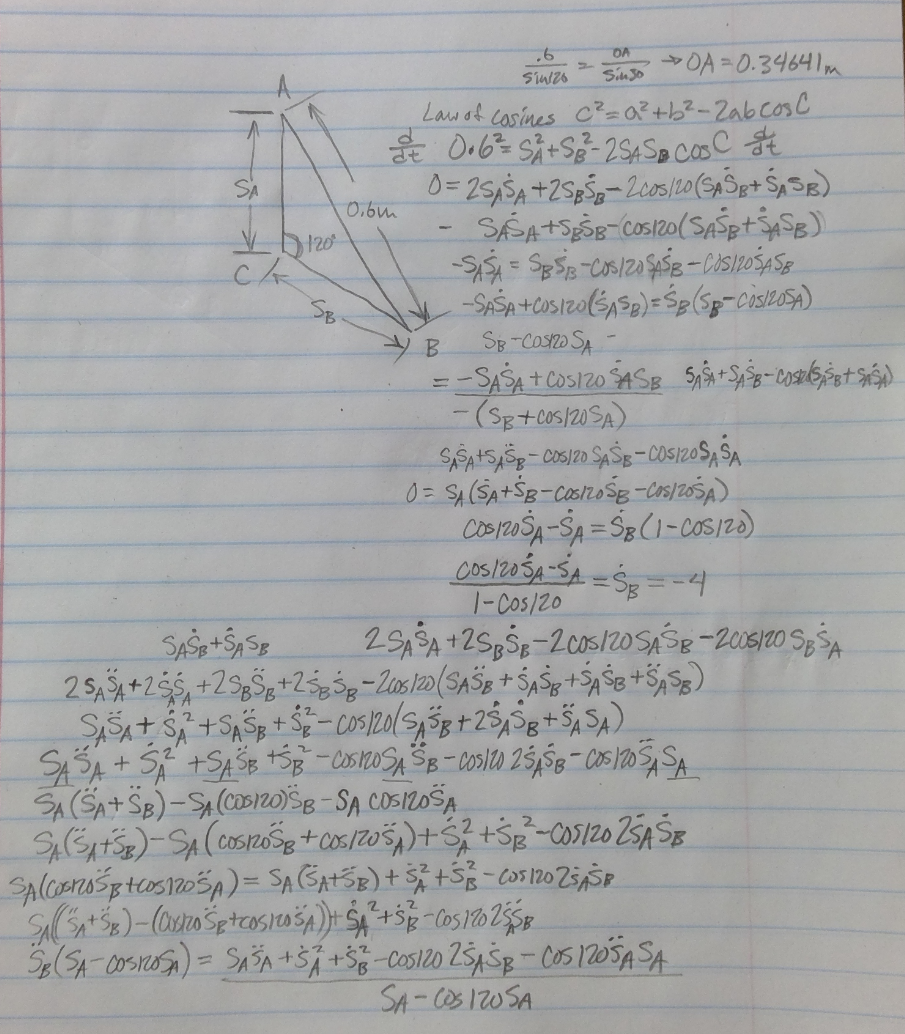 .6/sin120 = OA/sin30 → OA = 0.34641m
A
Law of cosines c² = a² + b² - 2ab cos C
d/dt 0.6² = S_A² + S_B² - 2S_A S_B cos C d/dt
0 = 2S_AṠ_A + 2S_BṠ_B - 2cos120(S_AṠ_B + Ṡ_A S_B)
S_A
0.6m
- S_AṠ_A + S_BṠ_B - cos120(S_AṠ_B + Ṡ_A S_B)
120°
C
-S_AṠ_A = S_BṠ_B - cos120 S_AṠ_B - cos120 Ṡ_A S_B
-S_AṠ_A + cos120(Ṡ_A S_B) = Ṡ_B(S_B - cos120 S_A)
S_B
B
S_B - cos120 S_A -
= (-S_AṠ_A + cos120 Ṡ_A S_B)/(-(S_B + cos120 S_A))
S_AṠ_A + S_AṠ_B - cos120(S_AṠ_B + S_AṠ_A)
S_AṠ_A + S_AṠ_B - cos120 S_AṠ_B - cos120 S_AṠ_A
0 = S_A(Ṡ_A + Ṡ_B - cos120Ṡ_B - cos120Ṡ_A)
cos120Ṡ_A - Ṡ_A = Ṡ_B(1 - cos120)
(cos120Ṡ_A - Ṡ_A)/(1 - cos120) = Ṡ_B = -4
S_AṠ_B + Ṡ_A S_B 2S_AṠ_A + 2S_BṠ_B - 2cos120 S_AṠ_B - 2cos120 S_BṠ_A
2S_AS̈_A + 2Ṡ_AṠ_A + 2S_BS̈_B + 2Ṡ_BṠ_B - 2cos120(S_AS̈_B + Ṡ_AṠ_B + Ṡ_AṠ_B + S̈_A S_B)
S_AS̈_A + Ṡ_A² + S_AS̈_B + Ṡ_B² - cos120(S_AS̈_B + 2Ṡ_AṠ_B + S̈_A S_A)
S_AS̈_A + Ṡ_A² + S_AS̈_B + Ṡ_B² - cos120 S_AS̈_B - cos120 2Ṡ_AṠ_B - cos120 S̈_A S_A
S_A(S̈_A + S̈_B) - S_A(cos120)S̈_B - S_A cos120 S̈_A
S_A(S̈_A + S̈_B) - S_A(cos120S̈_B + cos120S̈_A) + Ṡ_A² + Ṡ_B² - cos120 2Ṡ_AṠ_B
S_A(cos120S̈_B + cos120S̈_A) = S_A(S̈_A + S̈_B) + Ṡ_A² + Ṡ_B² - cos120 2Ṡ_AṠ_B
S_A((S̈_A + S̈_B) - (cos120S̈_B + cos120S̈_A)) + Ṡ_A² + Ṡ_B² - cos120 2Ṡ_AṠ_B
S̈_B(S_A - cos120S_A) = (S_AS̈_A + Ṡ_A² + Ṡ_B² - cos120 2Ṡ_AṠ_B - cos120 S̈_A S_A)/(S_A - cos120 S_A)